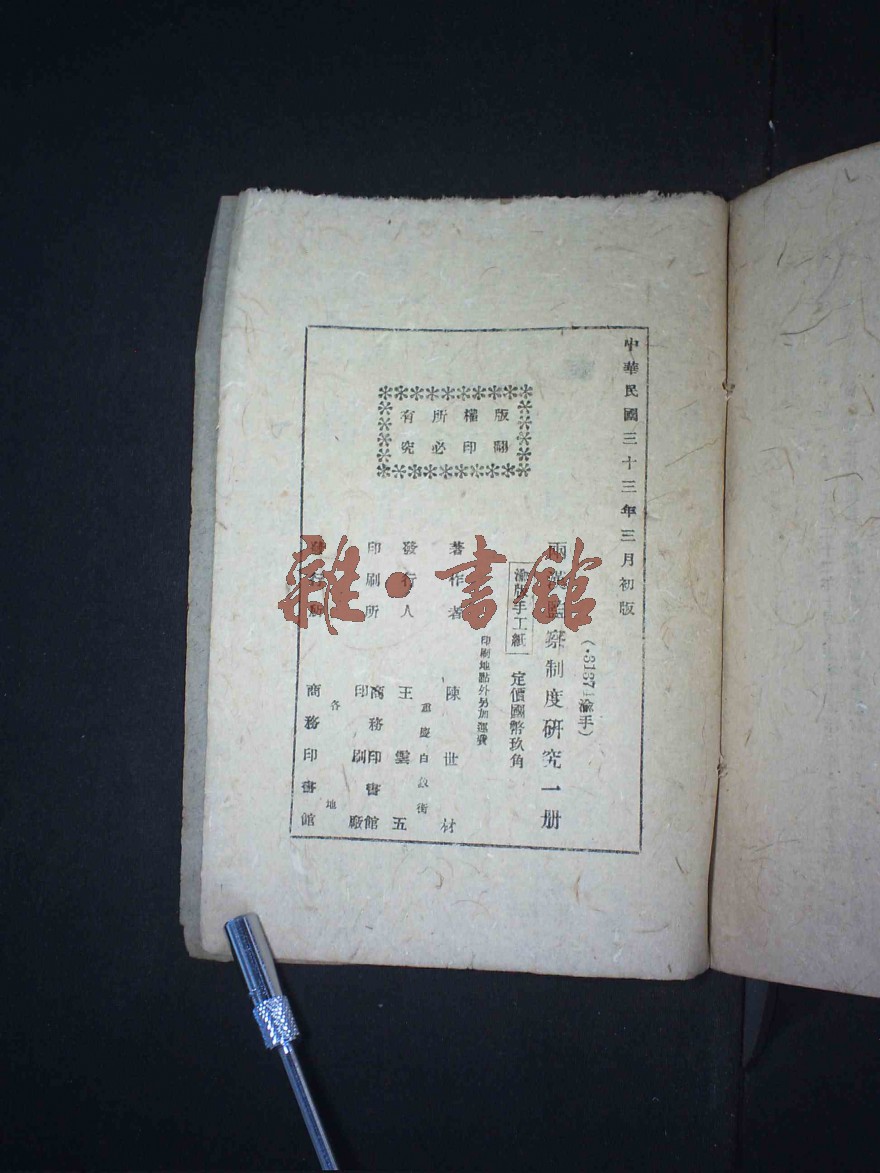 中華民國三十三年三月初版
(·3137—渝手)
兩漢監察制度研究一册
渝版手工紙
定價國幣玖角
印刷地點外另加運費
版權所有
翻印必究
著作者 陳世材
重慶白象街
發行人 王雲五
印刷所 商務印書館
印刷廠
發行所 各地
商務印書館
雜·書館